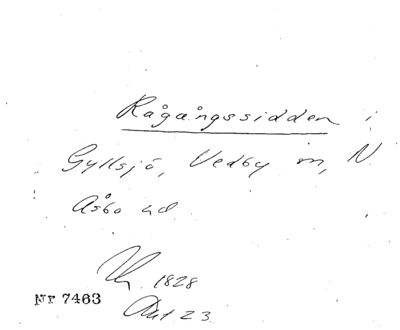 Rågångssidden i
Gyllsjö, Vedby sn, N
Åsbo hd
1828
Nr 7463
Akt 23